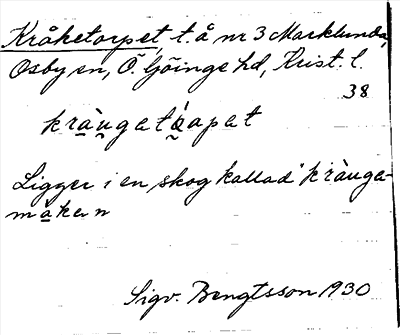 Kråketorpet, t. å nr 3 Marklunda,
Osby sn, Ö. Göinge hd, Krist. l.
38
kràu̯gatǻapat
Ligger i en skog kallad "kràuga-
måkan
Sigv. Bengtsson 1930